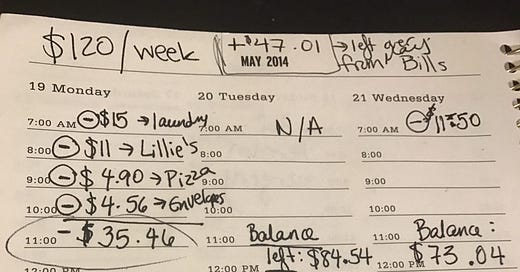 $120/week
+$47.01 → left
from Bills
MAY 2014
19 Monday
7:00 AM - $15 → laundry
8:00 - $11 → Lillie's
9:00 - $4.90 → Pizza
10:00 - $4.56 → Envelopes
11:00 - $35.46
12:00 PM
20 Tuesday
7:00 AM N/A
8:00
9:00
10:00
11:00 Balance
left: $84.54
21 Wednesday
7:00 AM - $11.50
8:00
9:00
10:00
11:00 Balance:
12:00 PM $73.04